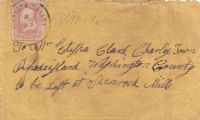 To Mr Elisha Clark Charles Town
Rhodeisland Washington County
to be Left at Shamrock Mills